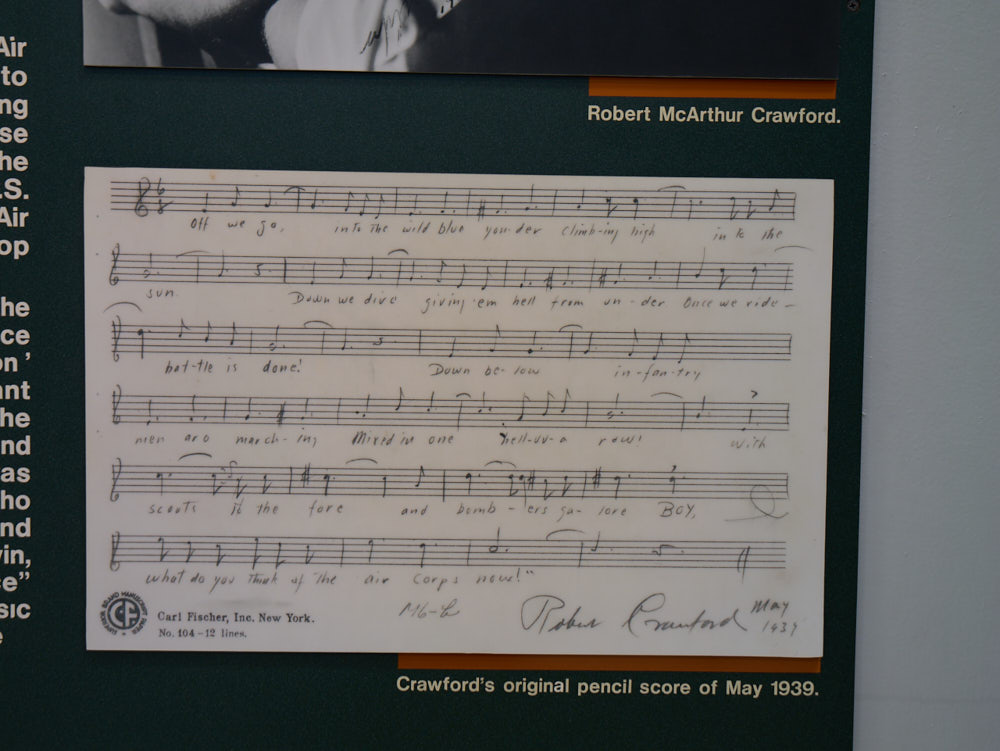 Air
to
ng
se
he
.S.
Air
op
he
ce
on'
ant
he
nd
as
ho
nd
vin,
ce"
sic
e
Robert McArthur Crawford.
6
8
Off we go, into the wild blue yon-der climb-ing high in to the
sun. Down we dive giving 'em hell from un-der Once we ride-
bat-tle is done! Down be-low in-fan-try
men are march-ing Mixed in one hell-uv-a row! with
scouts to the fore and bomb-ers ga-lore BOY,
what do you think of the air corps now!"
CF
Carl Fischer, Inc. New York.
No. 104 – 12 lines.
Robert Crawford
May
1939
Crawford's original pencil score of May 1939.